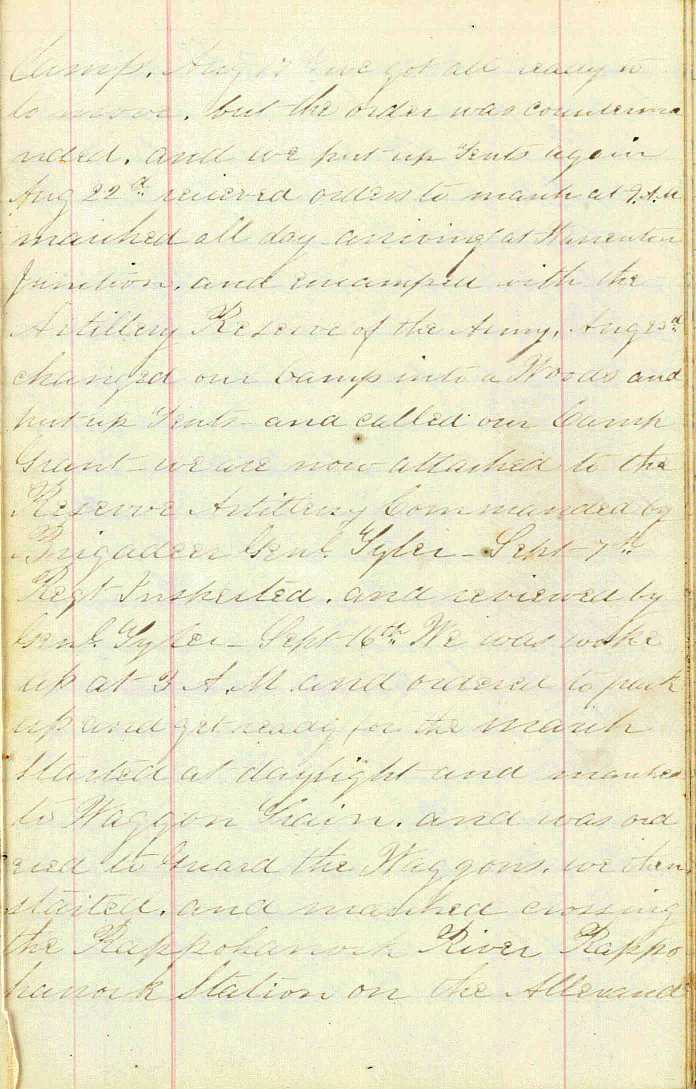 Camp. Aug we got all ready
to move. but the order was counterma
nded. and we put up Tents again
Aug 22d recieved orders to march at A.M
marched all day arriving at Warrenton
Junction. and encamped with the
Artillery Reserve of the Army. Aug 23d
changed our Camp into a Woods and
put up Tents and called our Camp
Grant - we are now attached to the
Reserve Artillery Commanded by
Brigadeer Genl. Tyler - Sept - 7th
Regt Inspected. and reviewed by
Genl. Tyler - Sept 16th We was woke
up at 3 A.M and ordered to pack
up and get ready for the march
Started at daylight and marched
to Waggon Train. and was ord
ered to Guard the Waggons. we then
started. and marched crossing
the Rappohanock River Rappo
hanock Station on the Allexand